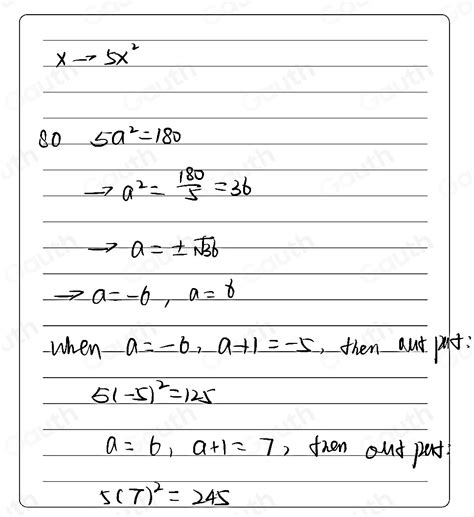 x → 5x²
so 5a² = 180
→ a² = 180/5 = 36
→ a = ± √36
→ a = -6, a = 6
when a = -6, a+1 = -5, then out put:
5(-5)² = 125
a = 6, a+1 = 7, then out put:
5(7)² = 245